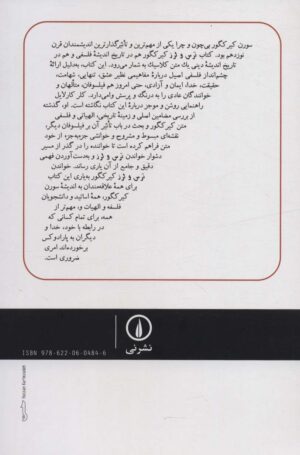 سورن کیرکگور بی‌چون و چرا یکی از مهم‌ترین و تأثیرگذارترین اندیشمندان قرن
نوزدهم بود. کتاب ترس و لرز کیرکگور هم در تاریخ اندیشهٔ فلسفی و هم در
تاریخ اندیشهٔ دینی یک متن کلاسیک به شمار می‌رود. این کتاب، به‌دلیل ارائهٔ
چشم‌انداز فلسفی اصیل دربارهٔ مفاهیمی نظیر عشق، تنهایی، شهامت،
حقیقت، خدا، ایمان و آزادی، حتی امروز هم فیلسوفان، متألهان و
خوانندگان عادی را به درنگ و پرسش وامی‌دارد. کلر کارلایل
راهنمایی روشن و موجز دربارهٔ این کتاب نگاشته است. او، گذشته
از بررسی مضامین اصلی و زمینهٔ تاریخی، الهیاتی و فلسفی
متن کیرکگور و بحث در باب تأثیر آن بر فیلسوفان دیگر،
نقشه‌ای مبسوط و مشروح و خوانشی جزءبه‌جزء از خود
متن فراهم کرده است تا خواننده را در گذر از مسیر
دشوار خواندن ترس و لرز و به‌دست‌آوردن فهمی
دقیق و جامع از آن یاری رساند. خواندن
ترس و لرز کیرکگور به‌یاری این کتاب
برای همهٔ علاقه‌مندان به اندیشهٔ سورن
کیرکگور، همهٔ اساتید و دانشجویان
فلسفه و الهیات و، مهم‌تر از
همه، برای تمام کسانی که
در رابطه با خود، خدا و
دیگران به پارادوکس
برخورده‌اند امری
ضروری است.
نشرنی
ISBN 978-622-06-0484-6